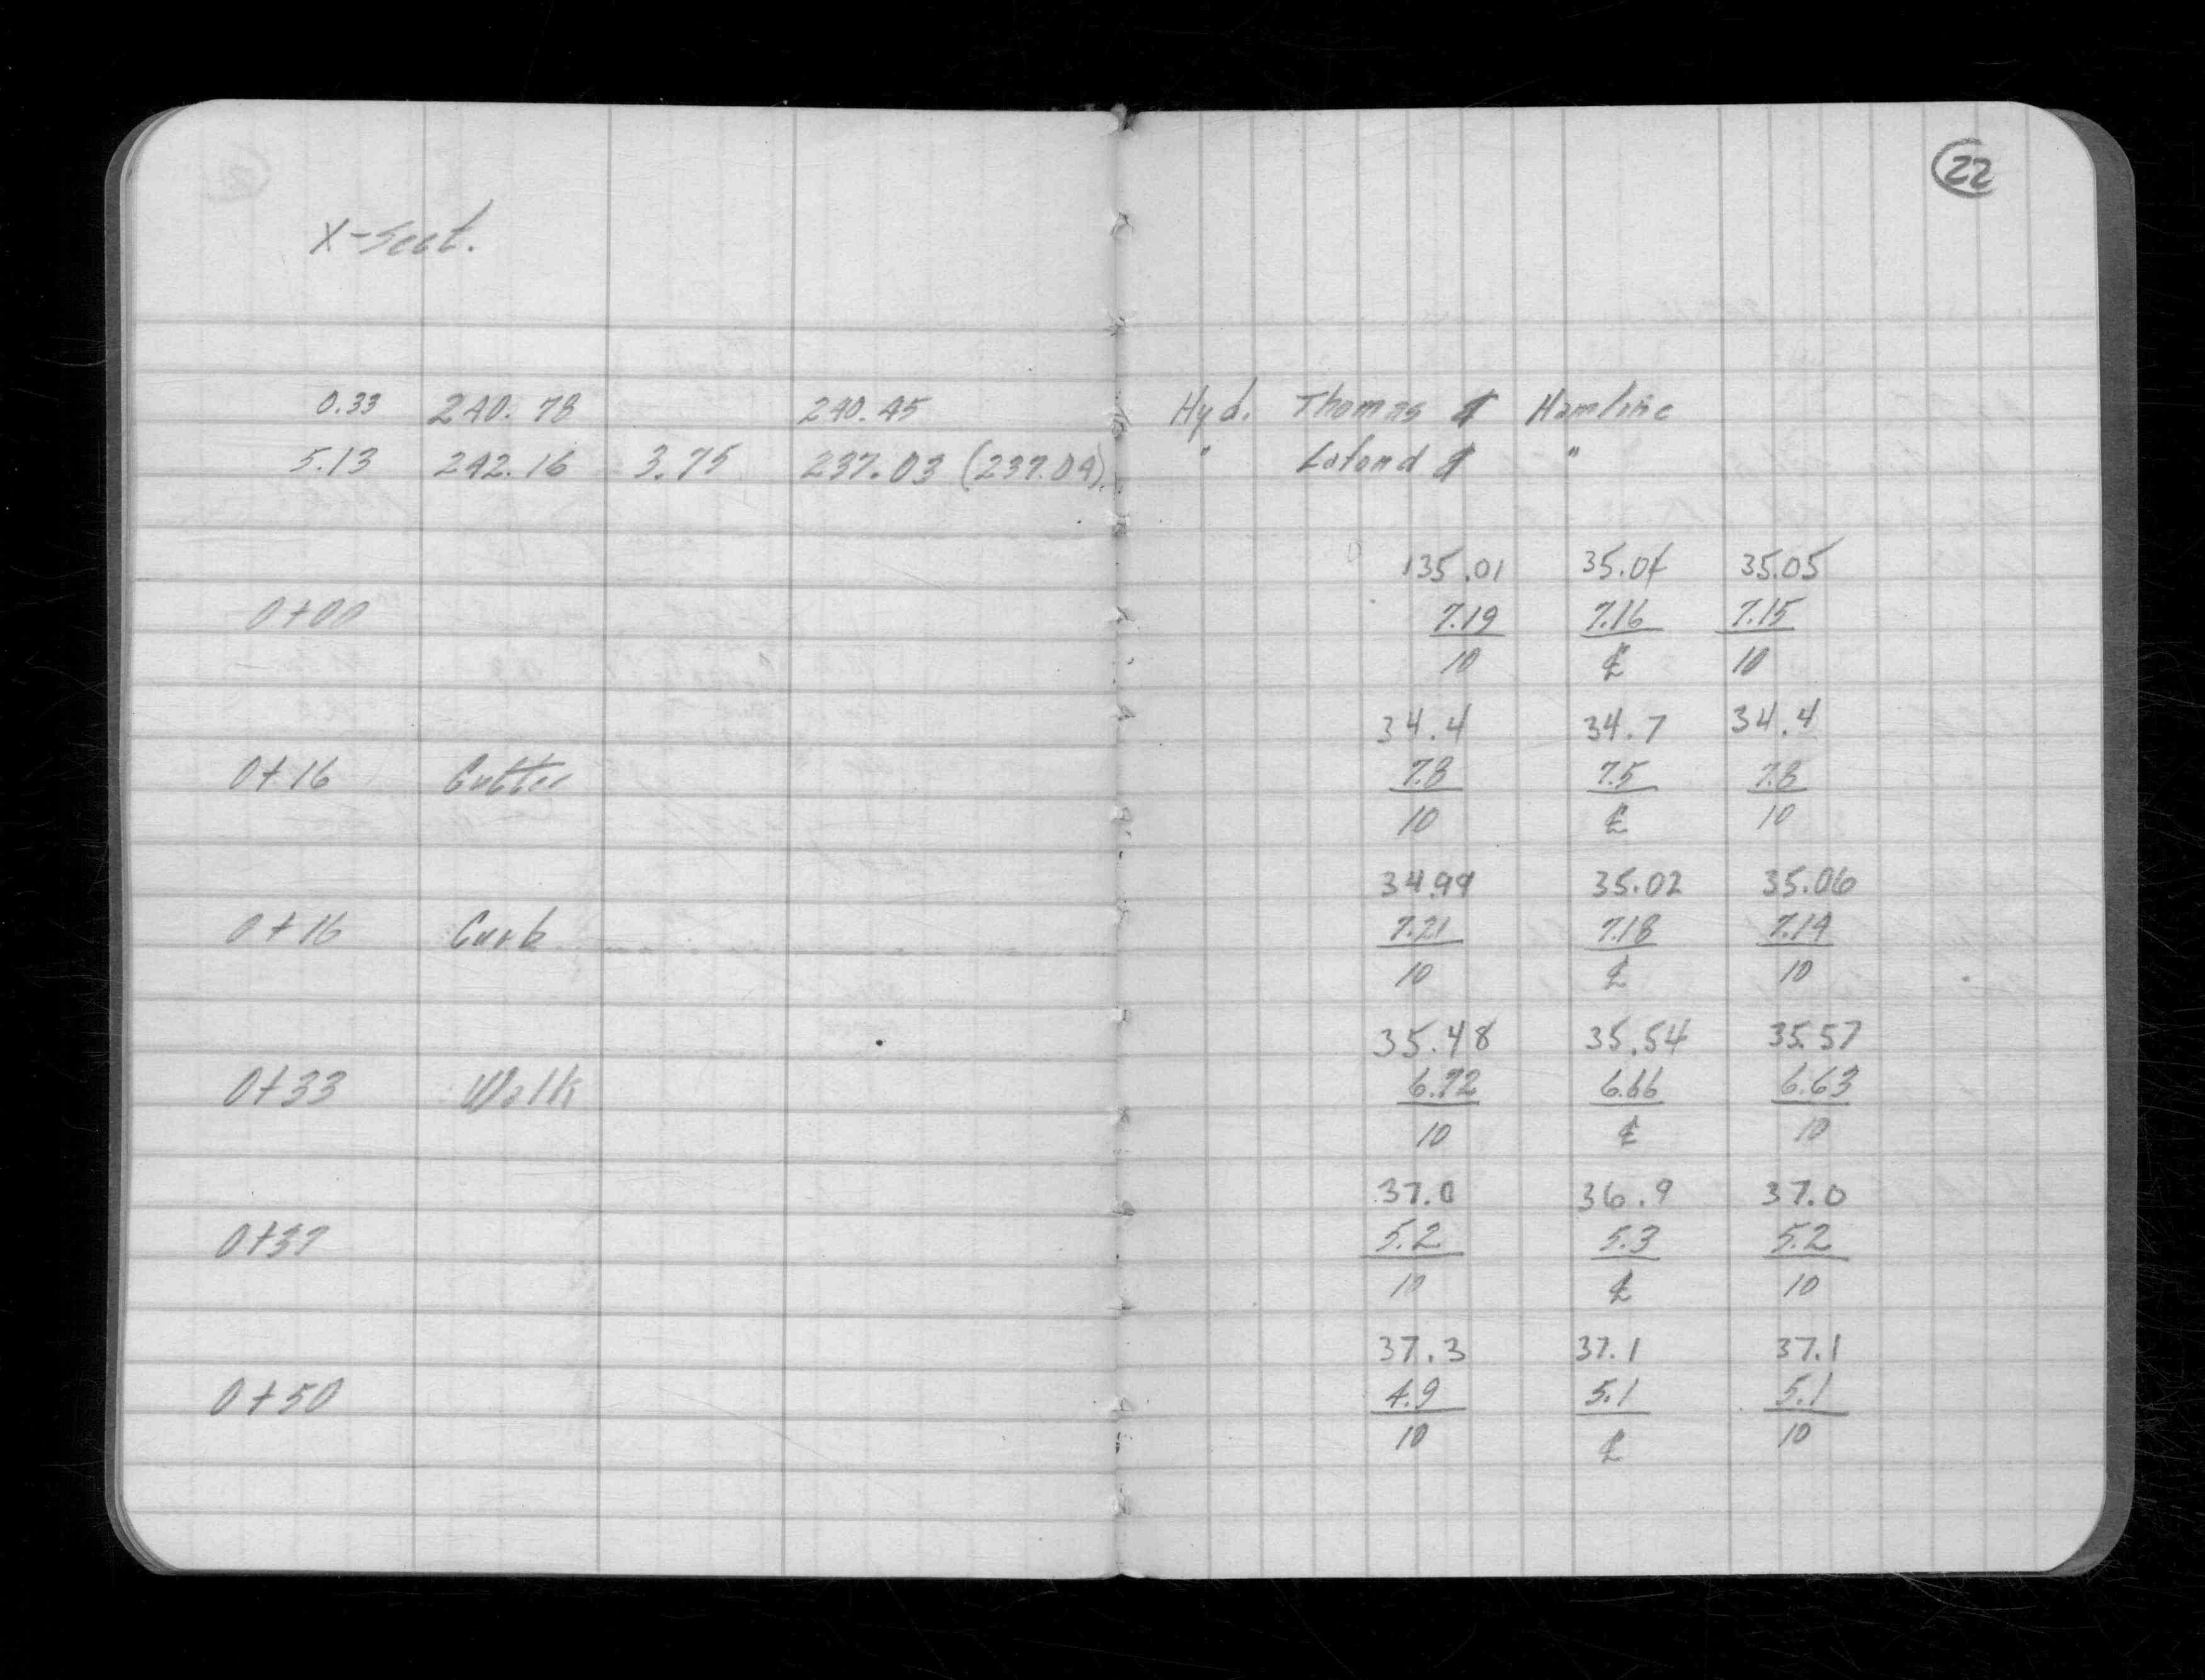 22
X-Sect.
0.33 240.78 240.45 Hyd. Thomas & Hamline
5.13 242.16 3.75 237.03 (237.04) " Lafond & "
135.01 35.04 35.05
0+00 7.19 7.16 7.15
10 ℄ 10
34.4 34.7 34.4
0+16 Gutter 7.8 7.5 7.8
10 ℄ 10
34.99 35.02 35.06
0+16 Curb 7.21 7.18 7.14
10 ℄ 10
35.48 35.54 35.57
0+33 Walk 6.72 6.66 6.63
10 ℄ 10
37.0 36.9 37.0
0+37 5.2 5.3 5.2
10 ℄ 10
37.3 37.1 37.1
0+50 4.9 5.1 5.1
10 ℄ 10